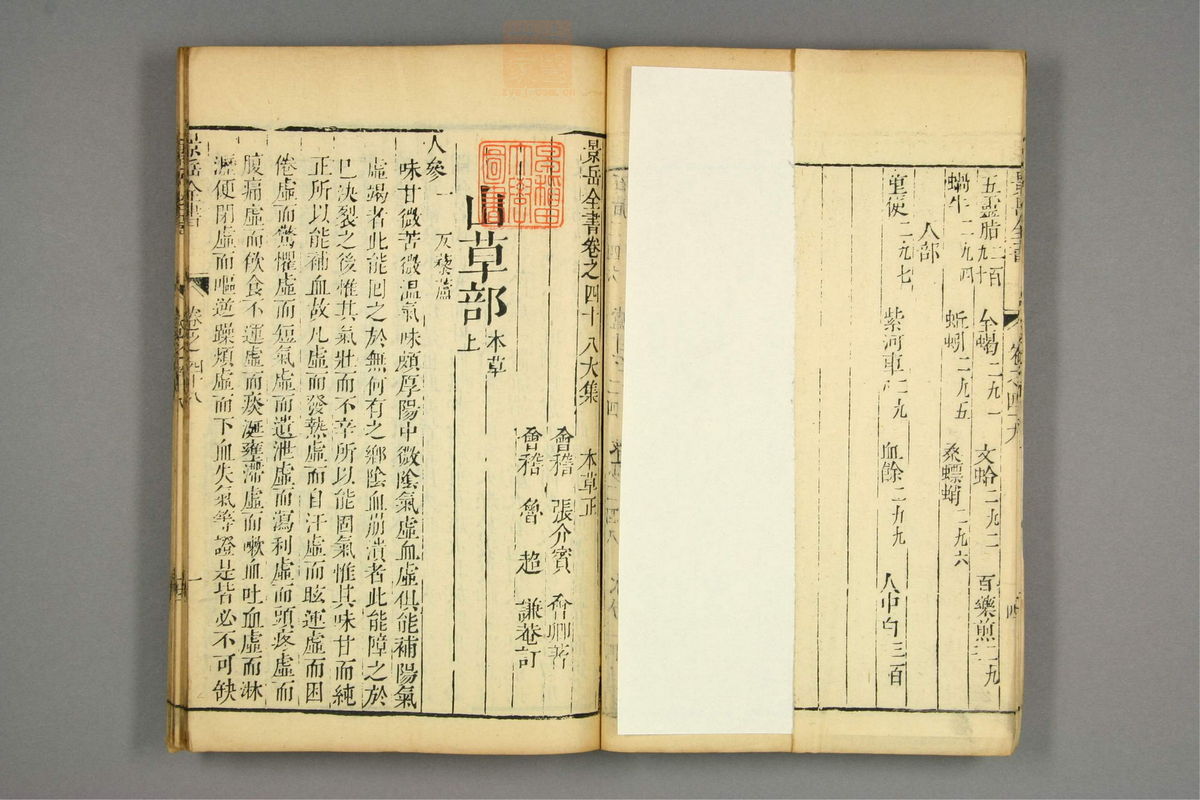 五靈脂 二百九十
全蝎 二九一
文蛤 二九二
百藥煎 二九三
蝸牛 二九四
蚯蚓 二九五
桑螵蛸 二九六
人部
童便 二九七
紫河車 二九八
血餘 二九九
人中白 三百
景岳全書卷之四十八大集 本草正
會稽 張介賓 會卿著
會稽 魯超 謙菴訂
山草部 本草上
人參一 反藜蘆
味甘微苦微溫氣味頗厚陽中微陰氣虛血虛俱能補陽氣
虛竭者此能回之於無何有之鄉陰血崩潰者此能障之於
已決裂之後惟其氣壯而不辛所以能固氣惟其味甘而純
正所以能補血故凡虛而發熱虛而自汗虛而眩運虛而困
倦虛而驚懼虛而短氣虛而遺泄虛而瀉利虛而頭疼虛而
腹痛虛而飲食不運虛而痰涎壅滯虛而嗽血吐血虛而淋
瀝便閉虛而嘔逆躁煩虛而下血失氣等證是皆必不可缺
景岳全書
卷之四十八
一